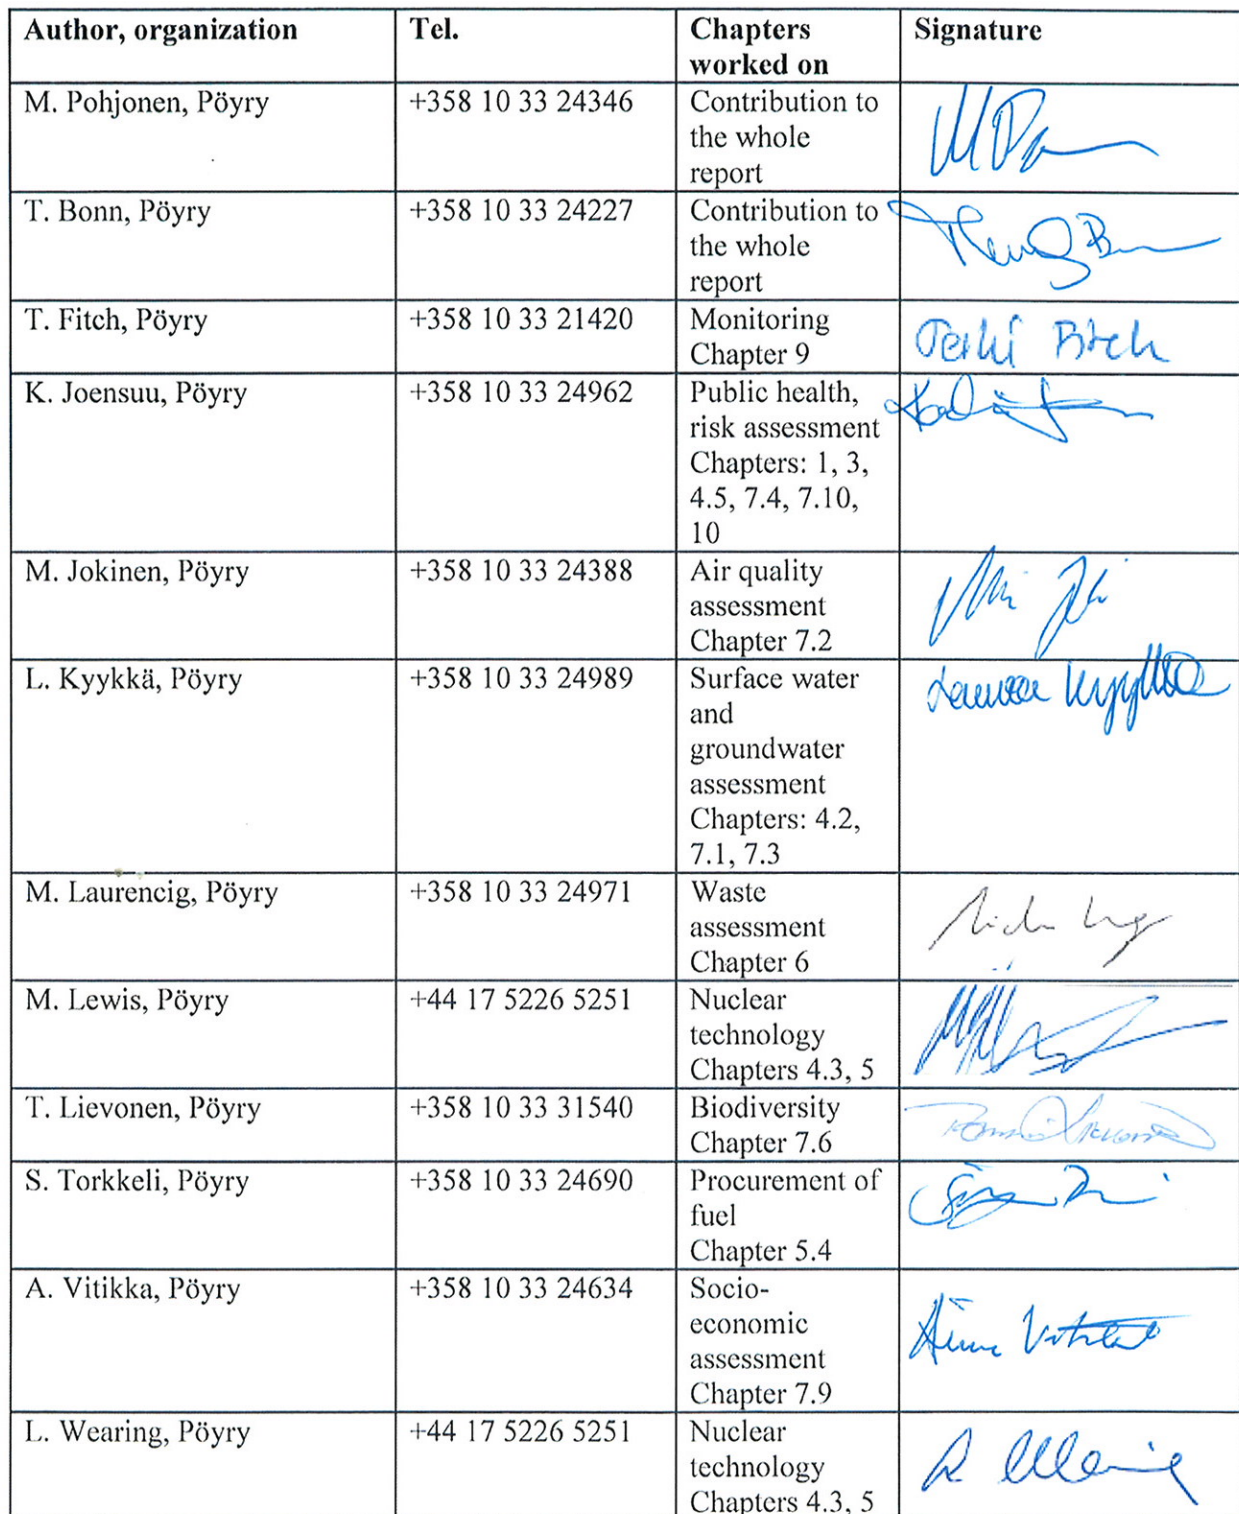 Author, organization Tel. Chapters Signature
worked on
M. Pohjonen, Pöyry +358 10 33 24346 Contribution to
the whole
report
T. Bonn, Pöyry +358 10 33 24227 Contribution to
the whole
report
T. Fitch, Pöyry +358 10 33 21420 Monitoring
Chapter 9
K. Joensuu, Pöyry +358 10 33 24962 Public health,
risk assessment
Chapters: 1, 3,
4.5, 7.4, 7.10,
10
M. Jokinen, Pöyry +358 10 33 24388 Air quality
assessment
Chapter 7.2
L. Kyykkä, Pöyry +358 10 33 24989 Surface water
and
groundwater
assessment
Chapters: 4.2,
7.1, 7.3
M. Laurencig, Pöyry +358 10 33 24971 Waste
assessment
Chapter 6
M. Lewis, Pöyry +44 17 5226 5251 Nuclear
technology
Chapters 4.3, 5
T. Lievonen, Pöyry +358 10 33 31540 Biodiversity
Chapter 7.6
S. Torkkeli, Pöyry +358 10 33 24690 Procurement of
fuel
Chapter 5.4
A. Vitikka, Pöyry +358 10 33 24634 Socio-
economic
assessment
Chapter 7.9
L. Wearing, Pöyry +44 17 5226 5251 Nuclear
technology
Chapters 4.3, 5